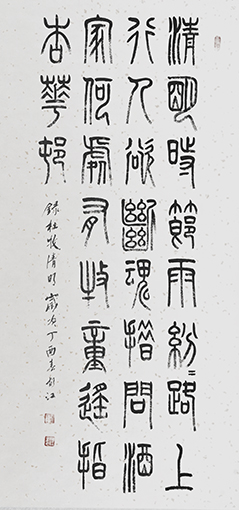 清明時節雨紛〻路上
行人欲斷魂借問酒
家何處有牧童遙指
杏華邨
錄杜牧清明 歲次丁酉春